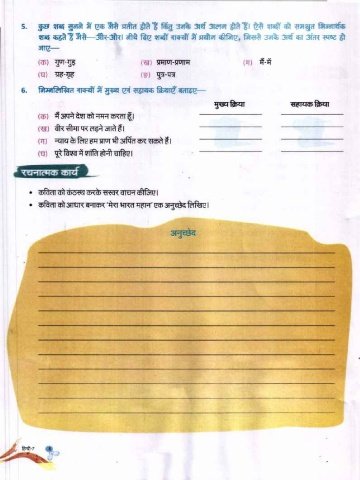 5. कुछ शब्द सुनने में एक जैसे प्रतीत होते हैं किंतु उनके अर्थ अलग होते हैं। ऐसे शब्दों को समश्रुत भिन्नार्थक
शब्द कहते हैं जैसे—और-ओर। नीचे दिए शब्दों वाक्यों में प्रयोग कीजिए, जिससे उनके अर्थ का अंतर स्पष्ट हो
जाए—
(क) गुण-गुड़ (ख) प्रमाण-प्रणाम (ग) मैं-में
(घ) ग्रह-गृह (ङ) पुत्र-पत्र
6. निम्नलिखित वाक्यों में मुख्य एवं सहायक क्रियाएँ बताइए—
मुख्य क्रिया सहायक क्रिया
(क) मैं अपने देश को नमन करता हूँ।
(ख) वीर सीमा पर लड़ने जाते हैं।
(ग) न्याय के लिए हम प्राण भी अर्पित कर सकते हैं।
(घ) पूरे विश्व में शांति होनी चाहिए।
रचनात्मक कार्य
• कविता को कंठस्थ करके सस्वर वाचन कीजिए।
• कविता को आधार बनाकर 'मेरा भारत महान' एक अनुच्छेद लिखिए।
अनुच्छेद
हिन्दी-7